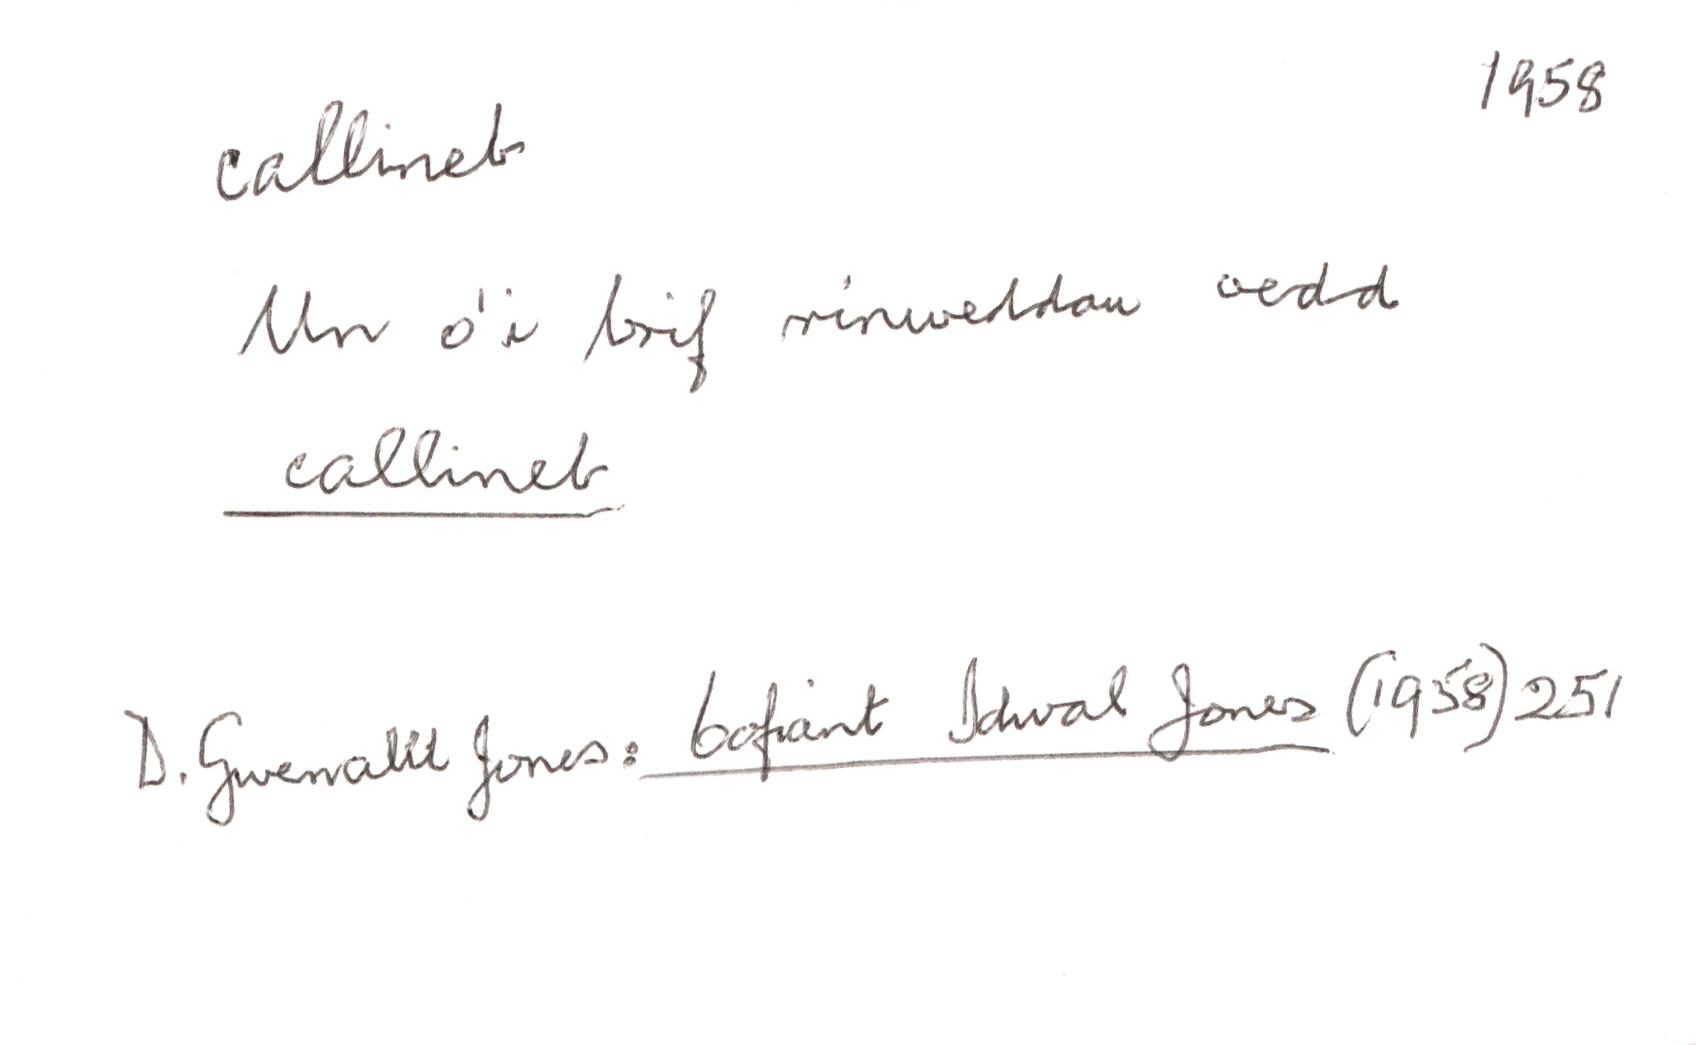 1958
callineb
Un o'i brif rinweddau oedd
callineb
D. Gwenallt Jones: Cofiant Idwal Jones (1958) 251